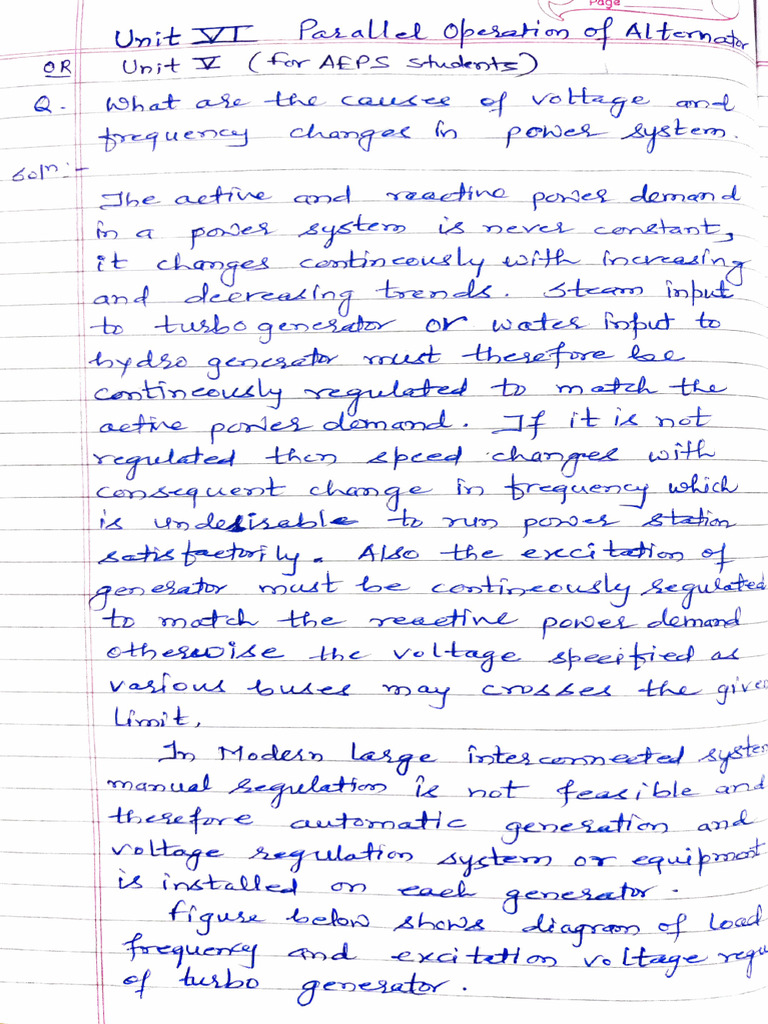 Page
Unit VI Parallel Operation of Alternator
OR Unit V (for AEPS students)
Q. What are the causes of voltage and
frequency changes in power system.
Soln:-
The active and reactive power demand
in a power system is never constant,
it changes contineously with increasing
and decreasing trends. Steam input
to turbo generator or water input to
hydro generator must therefore be
contineously regulated to match the
active power demand. If it is not
regulated then speed changes with
consequent change in frequency which
is undesirable to run power station
satisfactorily. Also the excitation of
generator must be contineously regulated
to match the reactive power demand
otherwise the voltage specified as
various buses may crosses the given
limit.
In Modern large interconnected system
manual regulation is not feasible and
therefore automatic generation and
voltage regulation system or equipment
is installed on each generator.
figure below shows diagram of load
frequency and excitation voltage regu
of turbo generator.